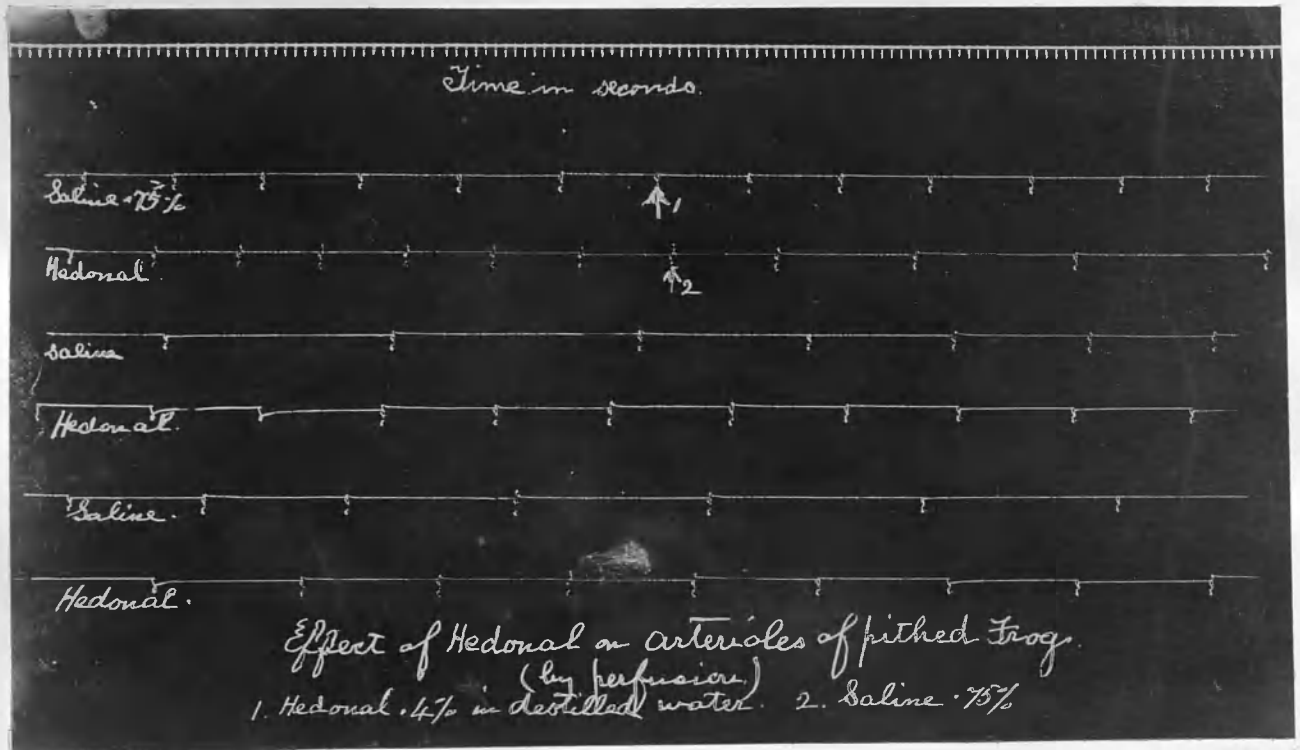 Time in seconds.
Saline ·75%
1
Hedonal.
2
Saline
Hedonal.
Saline.
Hedonal.
Effect of Hedonal on arterioles of pithed Frog.
(by perfusion)
1. Hedonal ·4% in destilled water. 2. Saline ·75%